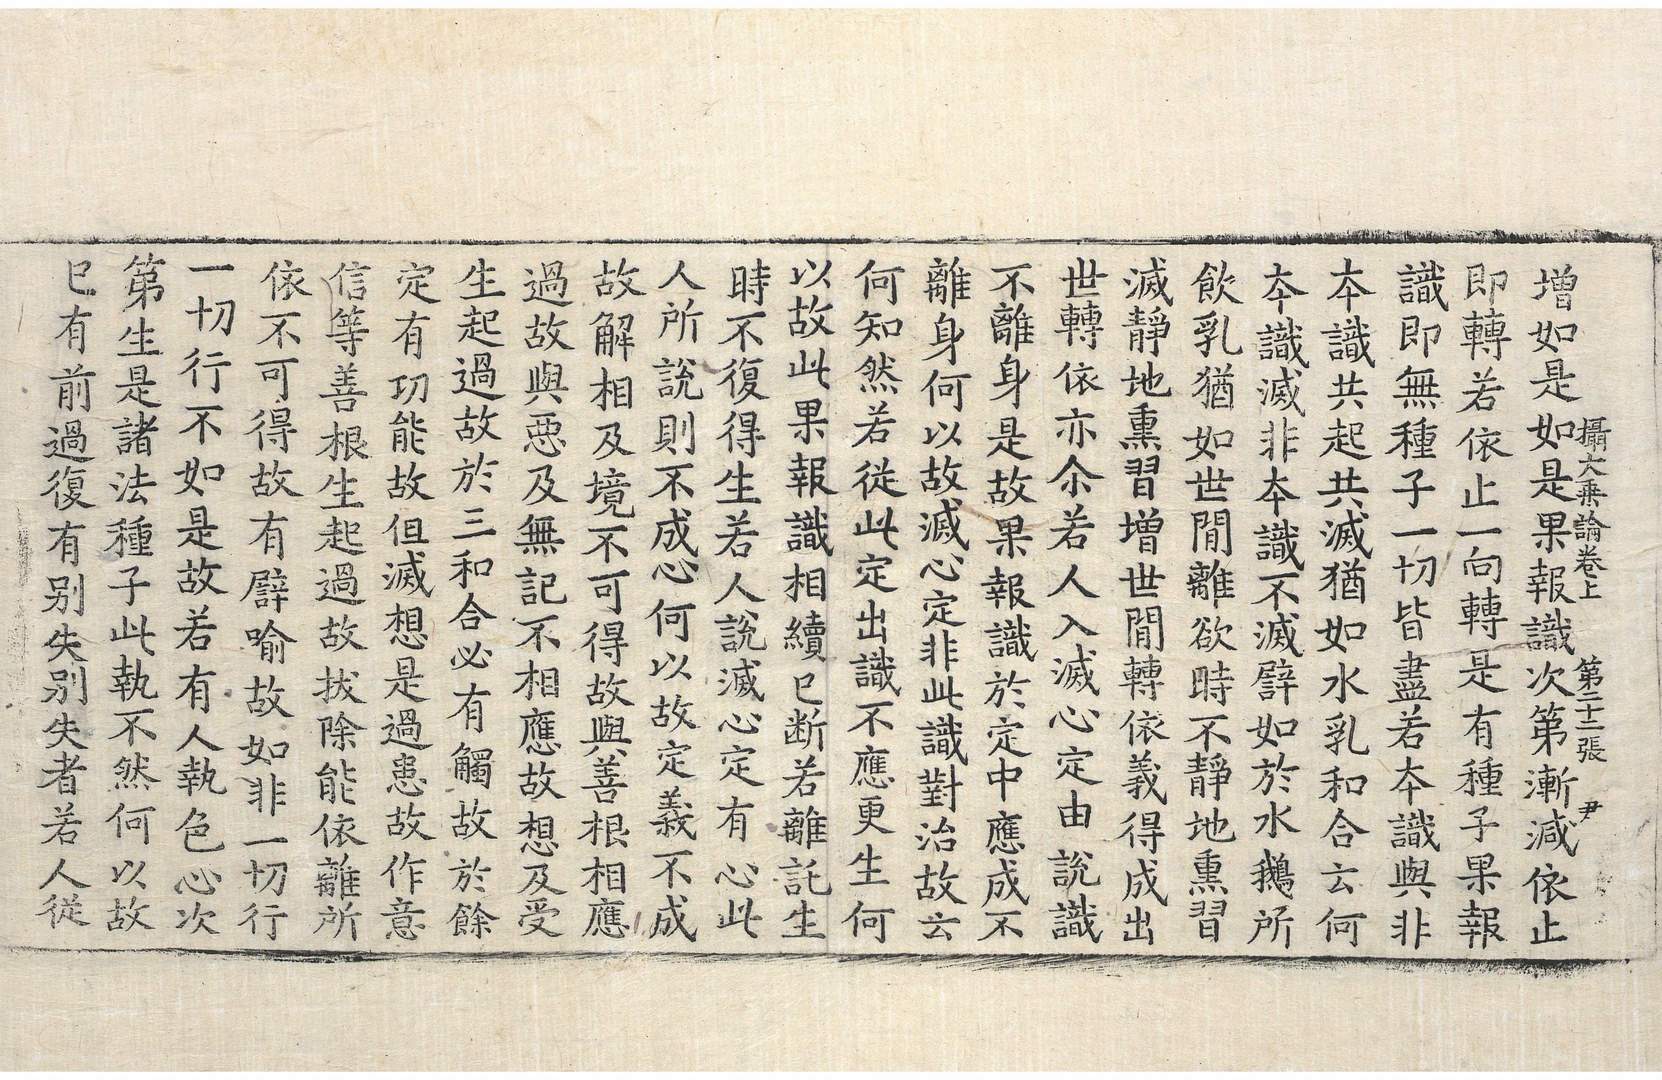 攝大乘論卷上　第二十二張　尹
增如是如是果報識次第漸減依止
即轉若依止一向轉是有種子果報
識即無種子一切皆盡若本識與非
本識共起共滅猶如水乳和合云何
本識滅非本識不滅譬如於水鵝所
飲乳猶如世間離欲時不靜地熏習
滅靜地熏習增世間轉依義得成出
世轉依亦尒若人入滅心定由說識
不離身是故果報識於定中應成不
離身何以故滅心定非此識對治故云
何知然若從此定出識不應更生何
以故此果報識相續已断若離託生
時不復得生若人說滅心定有心此
人所說則不成心何以故定義不成
故解相及境不可得故與善根相應
過故與惡及無記不相應故想及受
生起過故於三和合必有觸故於餘
定有功能故但滅想是過患故作意
信等善根生起過故拔除能依離所
依不可得故有譬喻故如非一切行
一切行不如是故若有人執色心次
第生是諸法種子此執不然何以故
已有前過復有別失別失者若人從